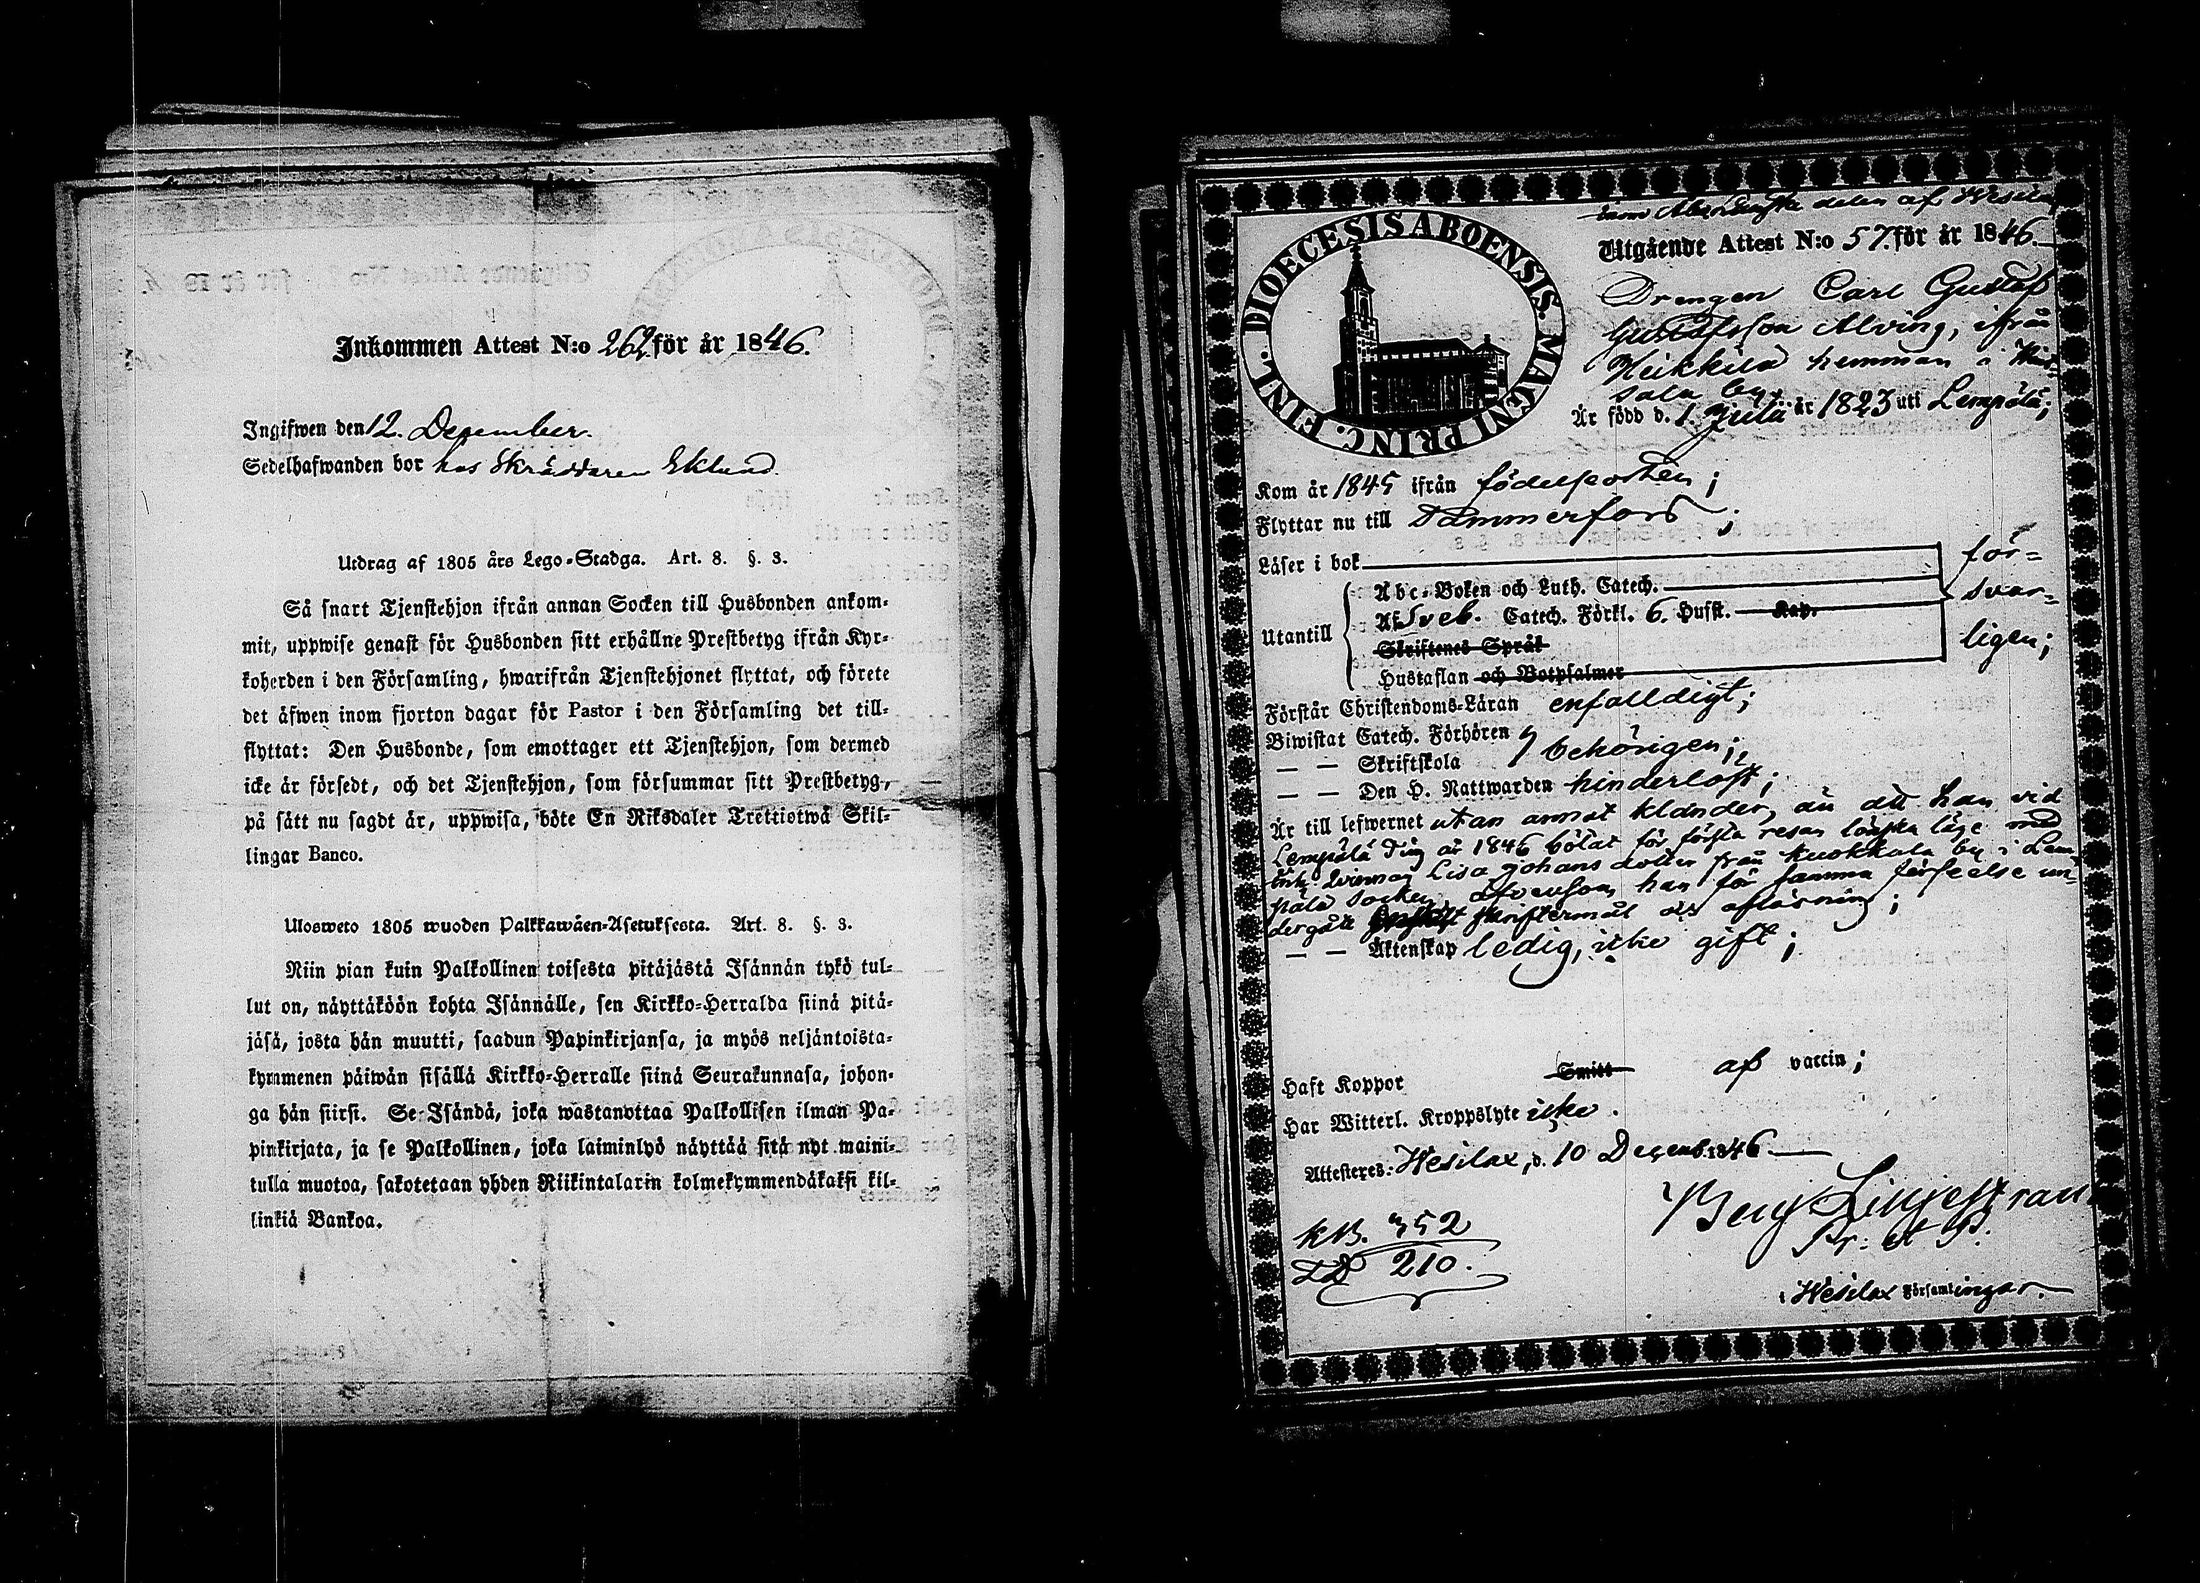 Inkommen Attest N:o 262 för år 1846.
Ingifwen den 12. December.
Sedelhafwanden bor hos Skräddaren Eklund
Utdrag af 1805 års Lego-Stadga. Art. 8. §. 3.
Så snart Tjenstehjon ifrån annan Socken till Husbonden ankom-
mit, uppwise genast för Husbonden sitt erhållne Prestbetyg ifrån Kyr-
koherden i den Församling, hwarifrån Tjenstehjonet flyttat, och förete
det äfwen inom fjorton dagar för Pastor i den Församling det till-
flyttat: Den Husbonde, som emottager ett Tjenstehjon, som dermed
icke är försedt, och det Tjenstehjon, som försummar sitt Prestbetyg,
på sätt nu sagdt är, uppwisa, böte En Riksdaler Trettiotwå Skil-
lingar Banco.
Ulosweto 1805 wuoden Palkkawäen-Asetuksesta. Art. 8. §. 3.
Niin pian kuin Palkollinen toisesta pitäjästä Isännän tykö tul-
lut on, näyttäköön kohta Isännälle, sen Kirkko-Herralda siinä pitä-
jäsä, josta hän muutti, saadun Papinkirjansa, ja myös neljäntoista-
kymmenen päiwän sisällä Kirkko-Herralle siinä Seurakunnasa, johon-
ga hän siirsi. Se Isändä, joka wastanottaa Palkollisen ilman Pa-
pinkirjata, ja se Palkollinen, joka laiminlyö näyttää sitä nyt maini-
tulla muotoa, sakotetaan yhden Riikintalarin kolmekymmendäkaksi kil-
linkiä Bankoa.
DIOECESIS ABOENSIS. MAGNI PRINC. FINL.
delen af Wesila
Utgående Attest N:o 57. för år 1846.
Drengen Carl Gustaf
Gustafsson Alving, ifrån
Heikkilä hemman i
sala by.
Är född d. 1. Julii år 1823 uti Lempälä;
Kom år 1845 ifrån födelseorten;
Flyttar nu till Tammerfors;
Läser i bok
Utantill
Abc-Boken och Luth. Catech.
Af Sveb. Catech. Förkl. 6. Hufst. Kap.
Skriftenes Språk
Hustaflan och Botpsalmer
för-
svar-
ligen;
Förstår Christendoms-Läran enfalldigt;
Biwistat Catech. Förhören
— — Skriftskola behörigen;
— — Den H. Nattwarden hinderlöst;
Är till lefwernet utan annat klander, än att han vid
Lempälä Ting år 1846 bötat för första resan lönska läge med
Lisa Johansdotter från Kuokkala by i Lem-
pälä Socken, äfvensom han för samma förseelse un-
dergått skriftermål och aflösning;
— — Äktenskap ledig, icke gift;
Haft Koppor Smitt af vaccin;
Har Witterl. Kroppslyte icke.
Attesteres: Wesilax, d. 10 Decemb. 1846.
KB. 352
210.
Benj Liljestrand
Pr: et P.
i Wesilax Församlingar.